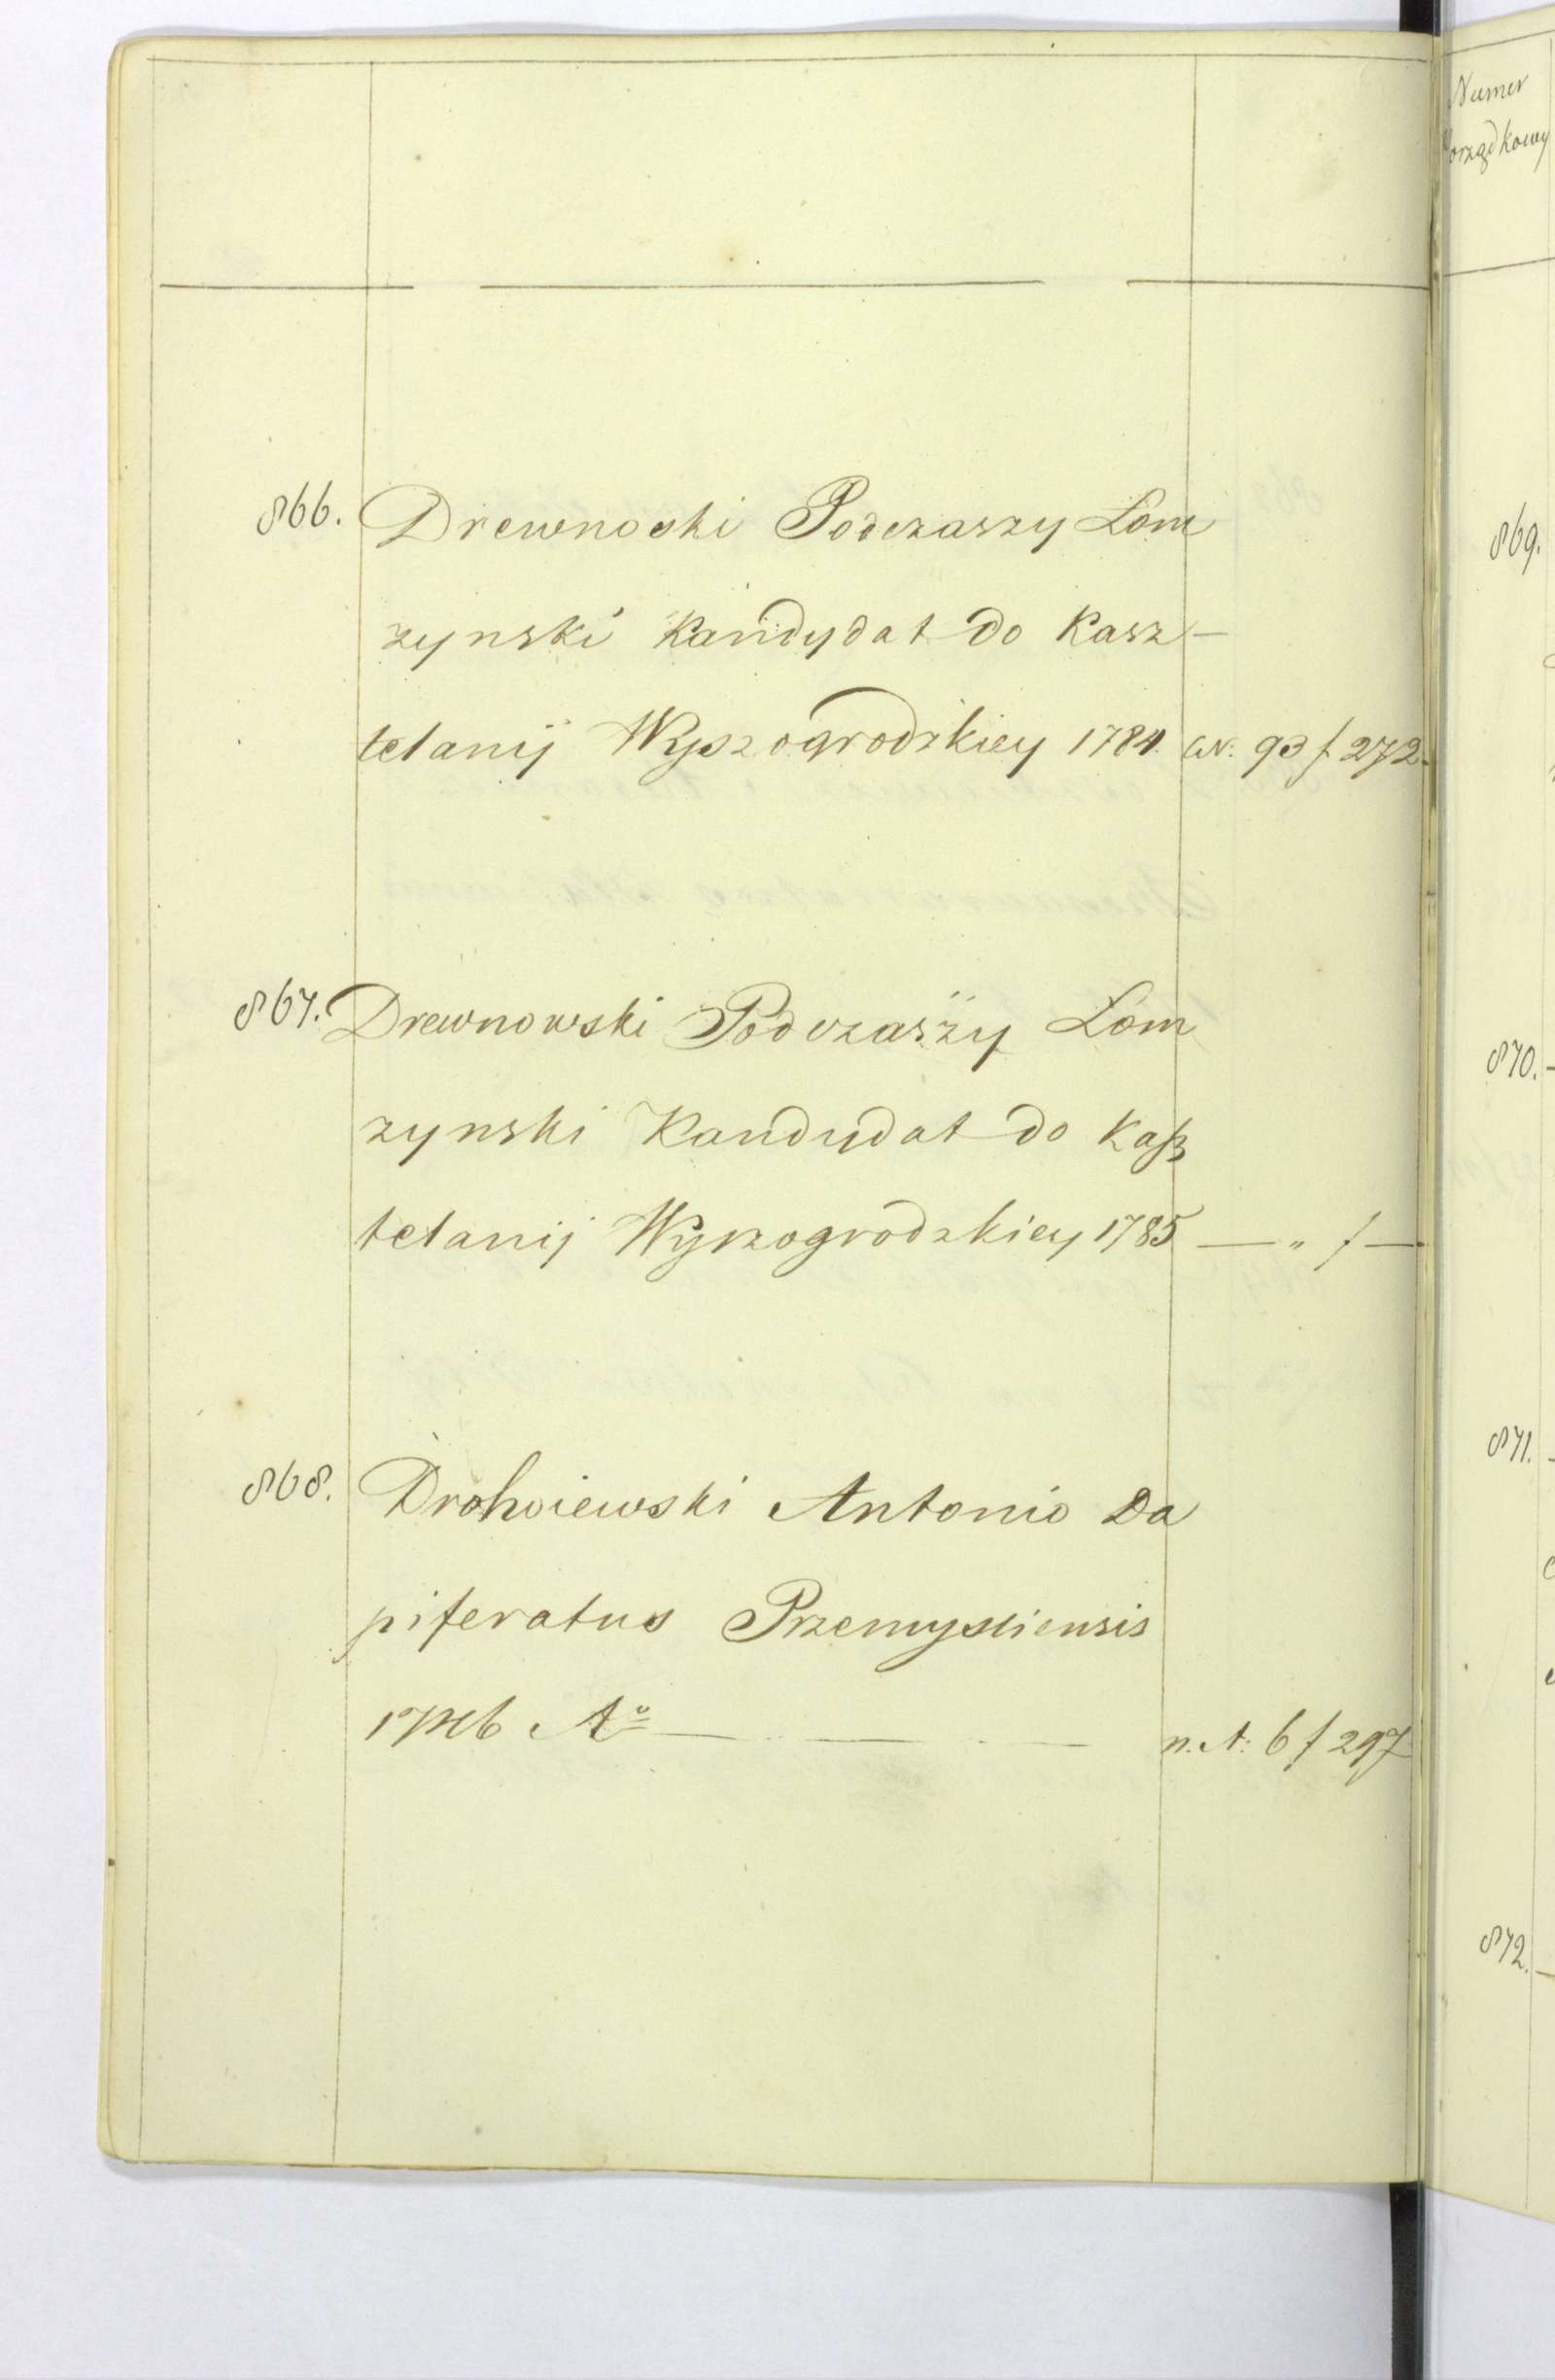 866. Drewnoski Podczaszy Lom
zynski Kandydat do Kasz-
telanij Wyszogrodzkiey 1784. W. 93 f 272
867. Drewnowski Podczaszy Lom
zynski Kandydat do Kasz
telanij Wyszogrodzkiey 1785 — " f —
868. Drohoiewski Antonio Da
piferatus Przemysliensis
Aº — — — n. A: 6 f 297
Numer
Porządkowy
869.
870.
871.
872.